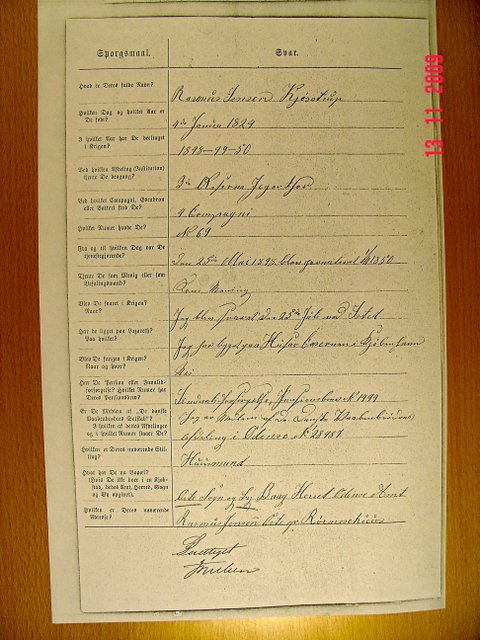 Spørgsmaal. Svar.
Hvad er Deres fulde Navn?
Rasmus Jensen Kjøstrup
Hvilken Dag og hvilket Aar er
De født?
4de Januar 1824
I hvilket Aar har De deeltaget
i Krigen?
1848-49-50
Ved hvilken Afdeling (Institution)
tjente De dengang?
3die Reserve Jægerkor
Ved hvilket Compagni, Escadron
eller Batteri stod De?
4 Compagni
Hvilket Numer havde De?
№ 69
Fra og til hvilken Dag var De
tjenstgjørende?
Den 25de Mai 1848 blev permiteret 1850
Tjente De som Menig eller som
Befalingsmand?
Som Mening
Blev De saaret i Krigen?
Naar?
Jeg blev den 25de Juli ved Isted
Har De ligget paa Lazareth?
Paa hvilket?
Jeg har ligget paa Husar Casernen i Kjøbenhavn
Blev De fangen i Krigen?
Naar og hvor?
Nei
Har De Pension eller Invalid-
forsørgelse? Hvilket Numer har
Deres Pensionsbrev?
Invalideforsørgelse, Pensionsbrev № 1999
Er De Medlem af „De danske
Vaabenbrødres Selskab“?
I hvilken af dettes Afdelinger
og i hvilket Numer staaer De?
Jeg er Medlem af de Danske Vaabenbrødres
afdeling i Odense № 28487
Hvilken er Deres nuværende Stil-
ling?
Huusmand
Hvor har De nu Bopæl?
(Hvis De ikke boer i en Kjøb-
stad, bedes Amt, Herred, Sogn
og By opgivet).
Sogn og By Baag Herret Odense Amt
Hvilken er Deres nuværende
Adresse?
Rasmus Jensen pr.